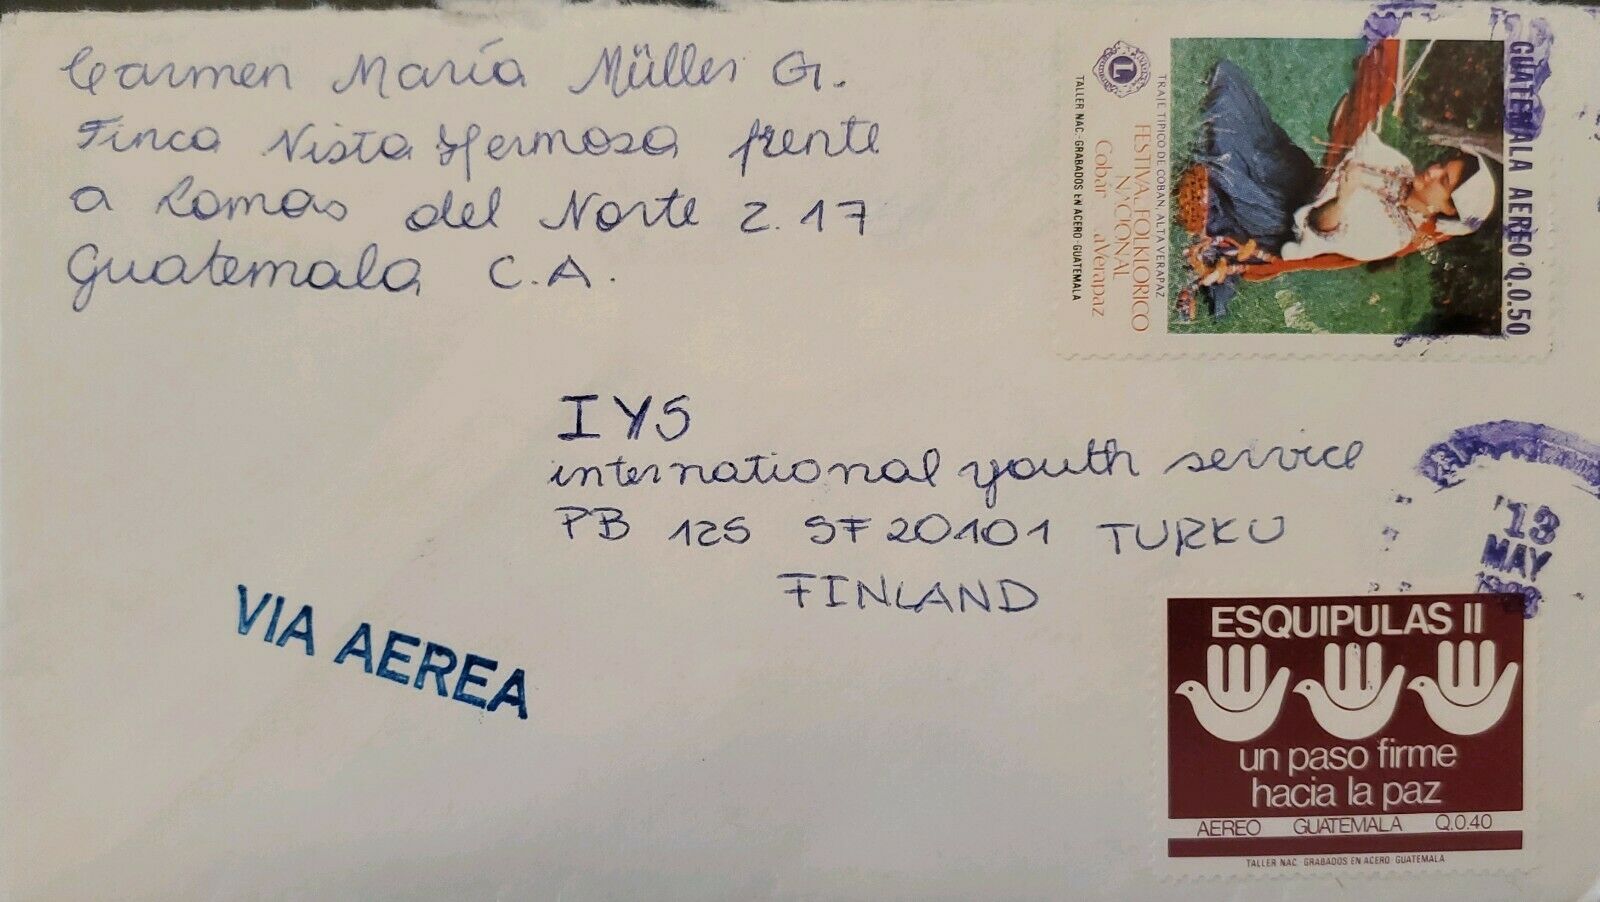 Carmen María Müller G.
Finca Vista Hermosa frente
a Lomas del Norte Z. 17
Guatemala C.A.
GUATEMALA AEREO Q.0.50
TRAJE TIPICO DE COBAN, ALTA VERAPAZ
FESTIVAL FOLKLORICO
NACIONAL
Cobán
aVerapaz
TALLER NAC. GRABADOS EN ACERO-GUATEMALA
L
IYS
international youth service
PB 125 SF 20101 TURKU
FINLAND
VIA AEREA
13
MAY
ESQUIPULAS II
un paso firme
hacia la paz
AEREO GUATEMALA Q.0.40
TALLER NAC. GRABADOS EN ACERO GUATEMALA